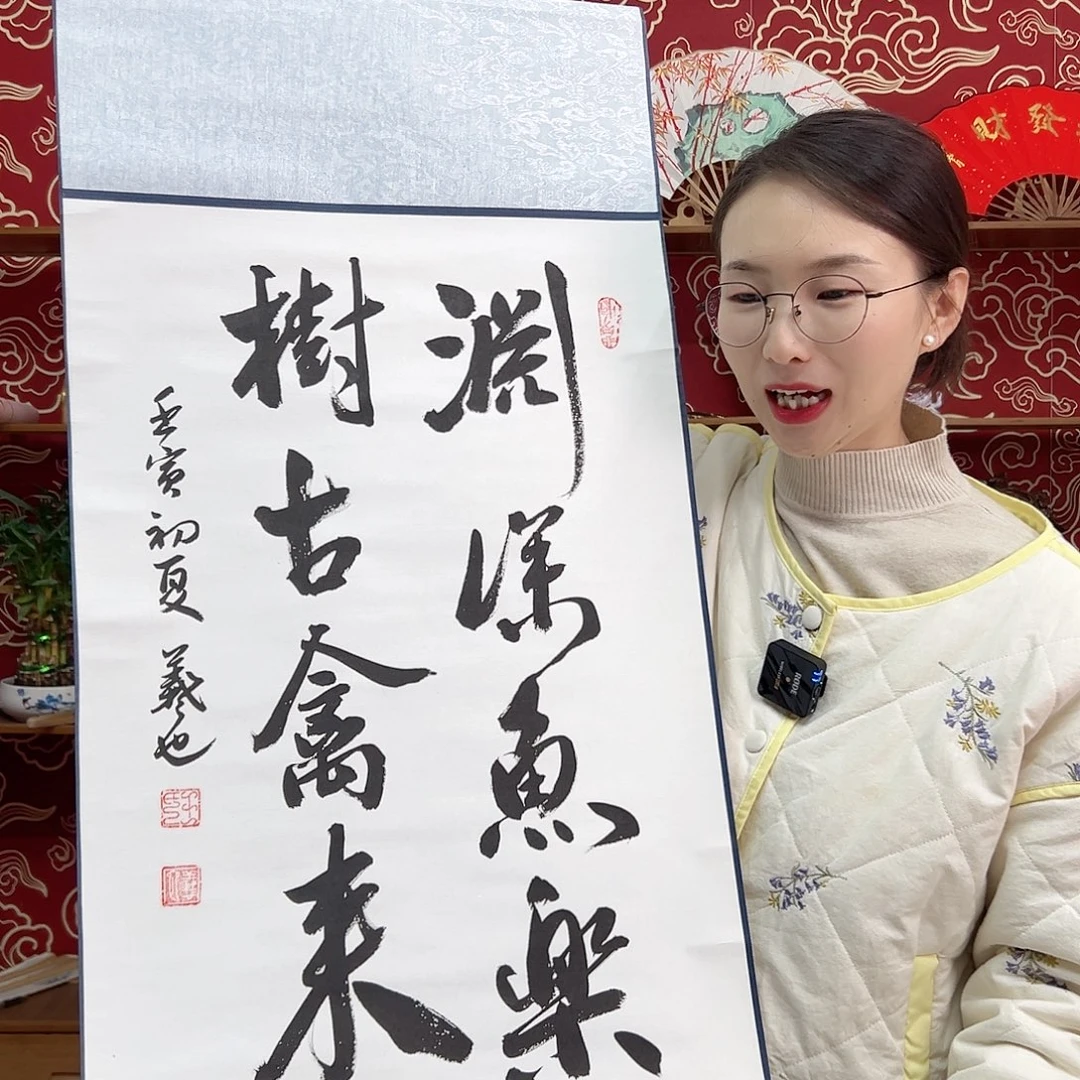 淵深魚樂
樹古禽來
壬寅初夏 羲也
發財
RODE